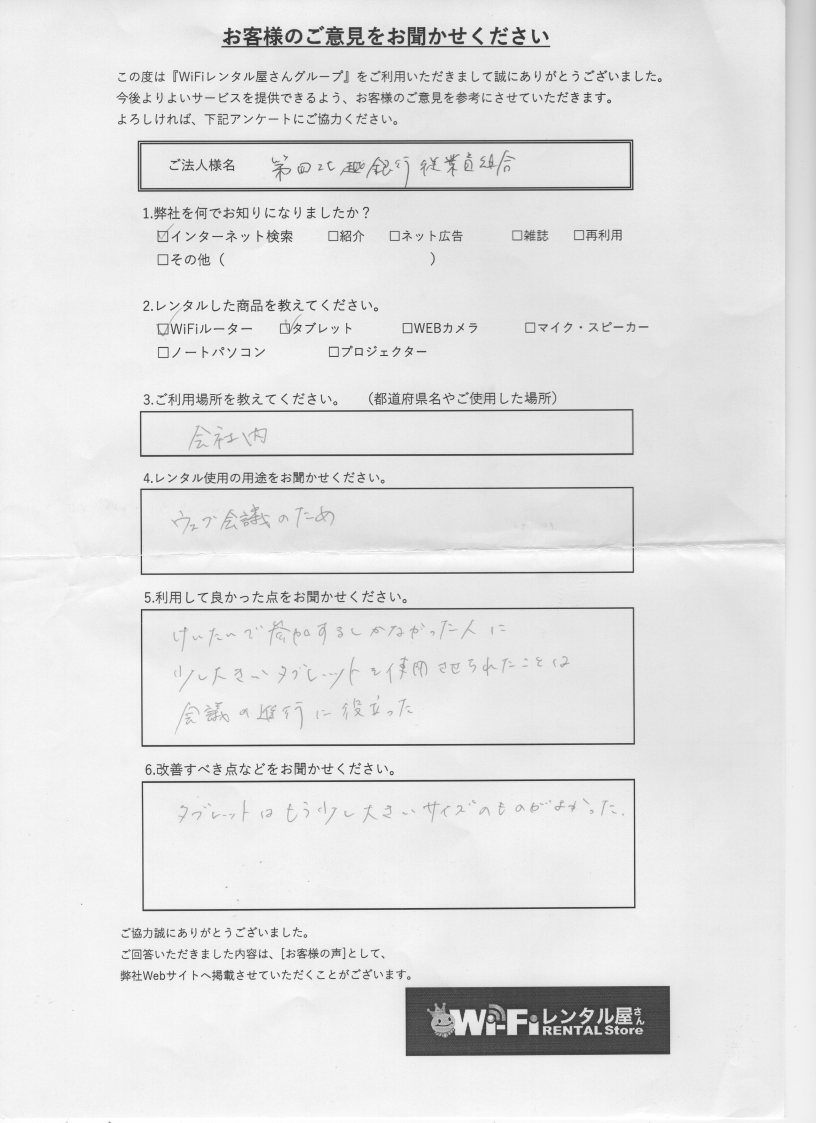 お客様のご意見をお聞かせください
この度は『WiFiレンタル屋さんグループ』をご利用いただきまして誠にありがとうございました。
今後よりよいサービスを提供できるよう、お客様のご意見を参考にさせていただきます。
よろしければ、下記アンケートにご協力ください。
ご法人様名 第四北越銀行従業員組合
1.弊社を何でお知りになりましたか？
☑インターネット検索 □紹介 □ネット広告 □雑誌 □再利用
□その他（ ）
2.レンタルした商品を教えてください。
☑WiFiルーター ☑タブレット □WEBカメラ □マイク・スピーカー
□ノートパソコン □プロジェクター
3.ご利用場所を教えてください。 （都道府県名やご使用した場所）
会社内
4.レンタル使用の用途をお聞かせください。
ウェブ会議のため
5.利用して良かった点をお聞かせください。
けいたいで参加するしかなかった人に
少し大きいタブレットを使用させられたことは
会議の進行に役立った
6.改善すべき点などをお聞かせください。
タブレットはもう少し大きいサイズのものがよかった.
ご協力誠にありがとうございました。
ご回答いただきました内容は、[お客様の声]として、
弊社Webサイトへ掲載させていただくことがございます。
Wi-Fiレンタル屋さん
RENTAL Store